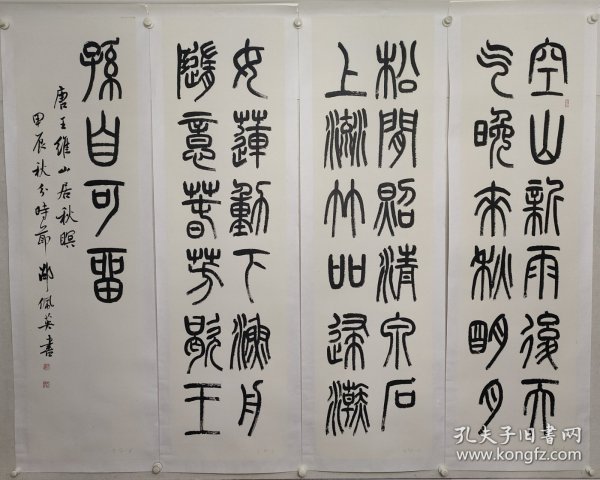 空山新雨後天
气晚来秋明月
松間照清泉石
上流竹吅歸瀚
女蓮動下漁舟
隨意春芳歇王
孫自可留
唐王維山居秋暝
甲辰秋分時節 佩英書
孔夫子旧书网
www.kongfz.com